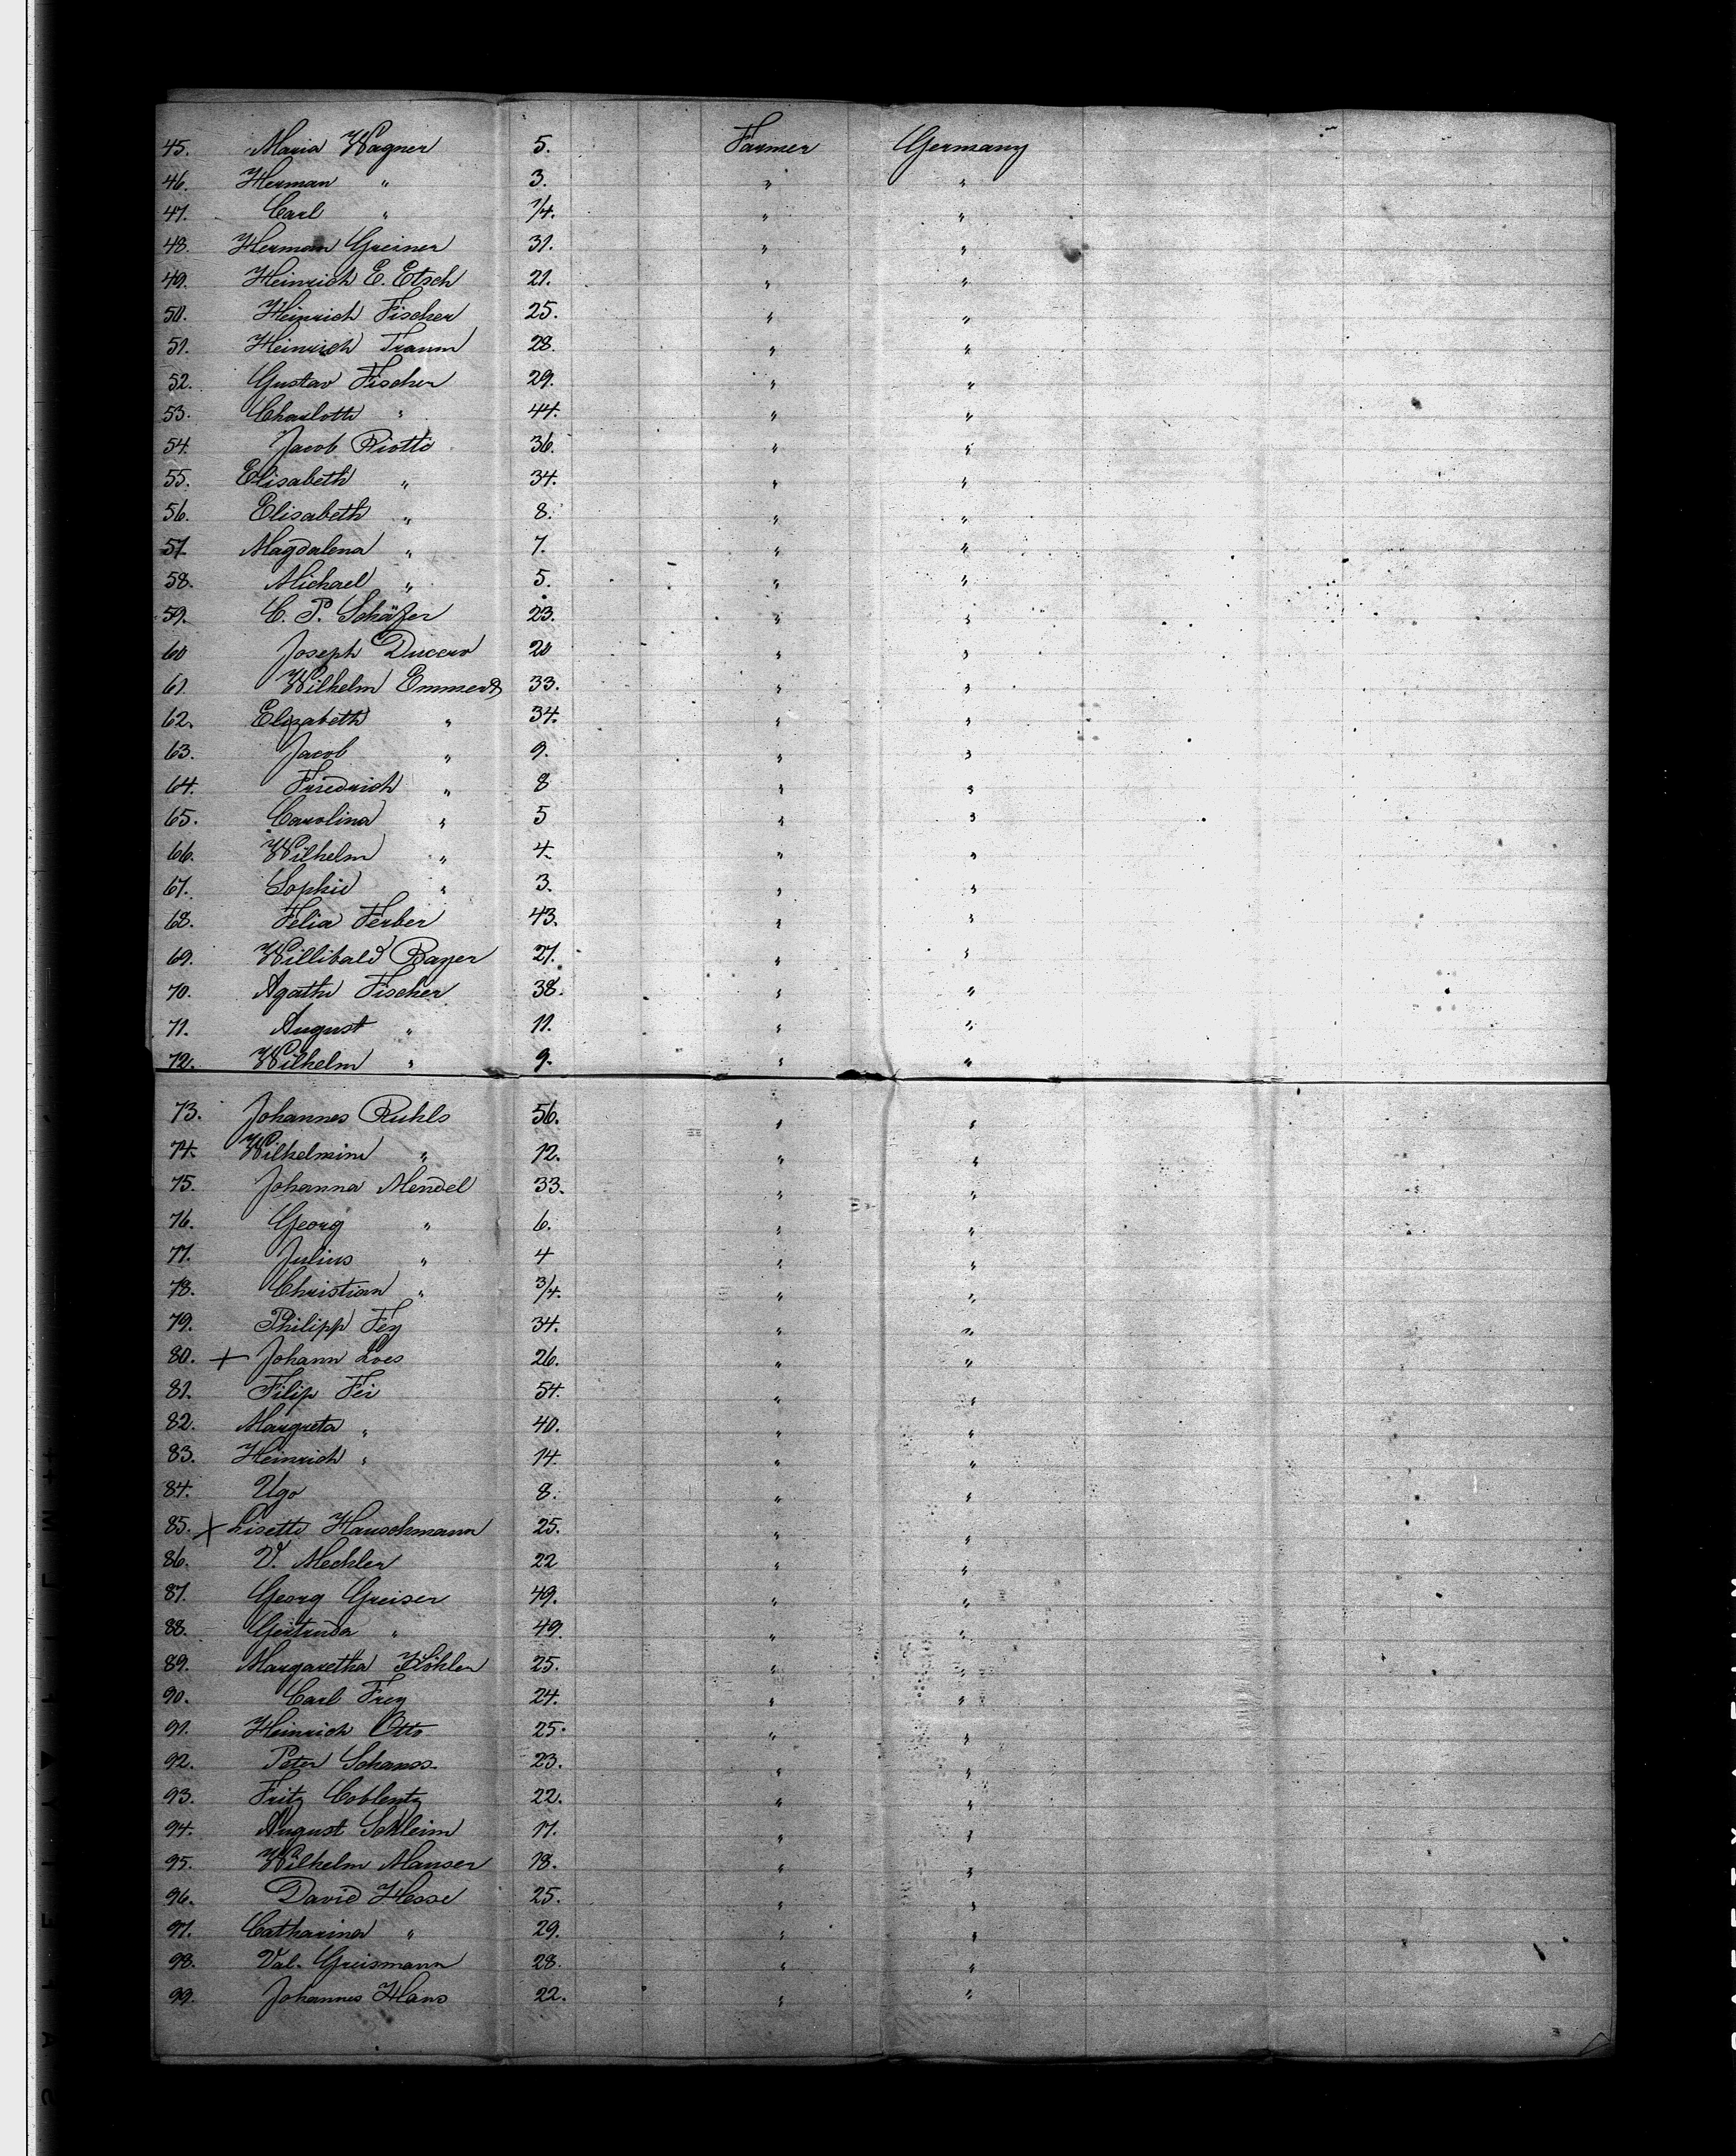 45. Maria Wagner 5. Farmer Germany
46. Herman " 3. " "
47. Carl " 1/4. " "
48. Herman Greiner 31. " "
49. Heinrich E. Etsch 21. " "
50. Heinrich Fischer 25. " "
51. Heinrich Traum 28. " "
52. Gustav Fischer 29. " "
53. Charlotte " 44. " "
54. Jacob Riotte 36. " "
55. Elisabeth " 34. " "
56. Elisabeth " 8. " "
57. Magdalena " 7. " "
58. Michael " 5. " "
59. C. P. Schäfer 23. " "
60 Joseph 20 " "
61. Wilhelm Emmert 33. " "
62. Elizabeth " 34. " "
63. Jacob " 9. " "
64. Friedrich " 8 " "
65. Carolina " 5 " "
66. Wilhelm " 4. " "
67. Sophie " 3. " "
68. Felia Ferber 43. " "
69. Willibald Bayer 27. " "
70. Agathe Fischer 38. " "
71. August " 11. " "
72. Wilhelm " 9. " "
73. Johannes Ruhls 56. " "
74. Wilhelmine " 12. " "
75. Johanna Mendel 33. " "
76. Georg " 6. " "
77. Julius " 4 " "
78. Christian " 3/4. " "
79. Philipp Fey 34. " "
80. + Johann Loes 26. " "
81. Filip Fei 54. " "
82. Margreta " 40. " "
83. Heinrich " 14. " "
84. Ugo 8. " "
85. + Lisette Hauschmann 25. " "
86. V. Mechler 22 " "
87. Georg Greiser 49. " "
88. Gertruda " 49. " "
89. Margaretha Köhler 25. " "
90. Carl Frey 24. " "
91. Heinrich Otto 25. " "
92. Peter Schanss 23. " "
93. Fritz Coblentz 22. " "
94. August Schleim 17. " "
95. Wilhelm Manser 18. " "
96. David Hesse 25. " "
97. Catharina " 29. " "
98. Val. Greismann 28. " "
99. Johannes Hans 22. " "